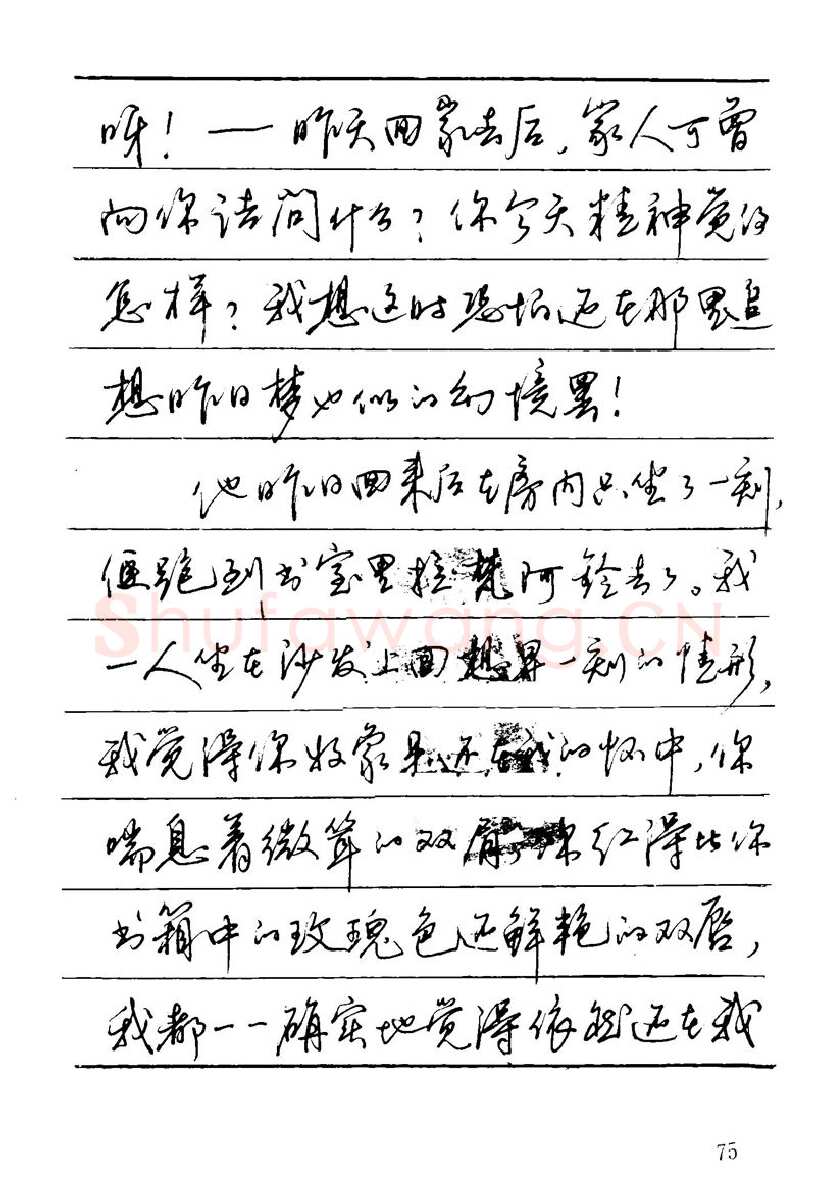 呀！——昨天回家去后，家人可曾
向你诘问什么？你今天精神觉得
怎样？我想这时恐怕还在那里追
想昨日梦也似的幻境罢！
他昨日回来后在房内只坐了一刻，
便跑到书室里拉梵阿铃去了。我
一人坐在沙发上回想早一刻的情形，
我觉得你好象是还在我的怀中，你
喘息着微耸的双肩，你红得比你
书籍中的玫瑰色还鲜艳的双唇，
我都一一确实地觉得依然还在我
75
Shufawang.CN